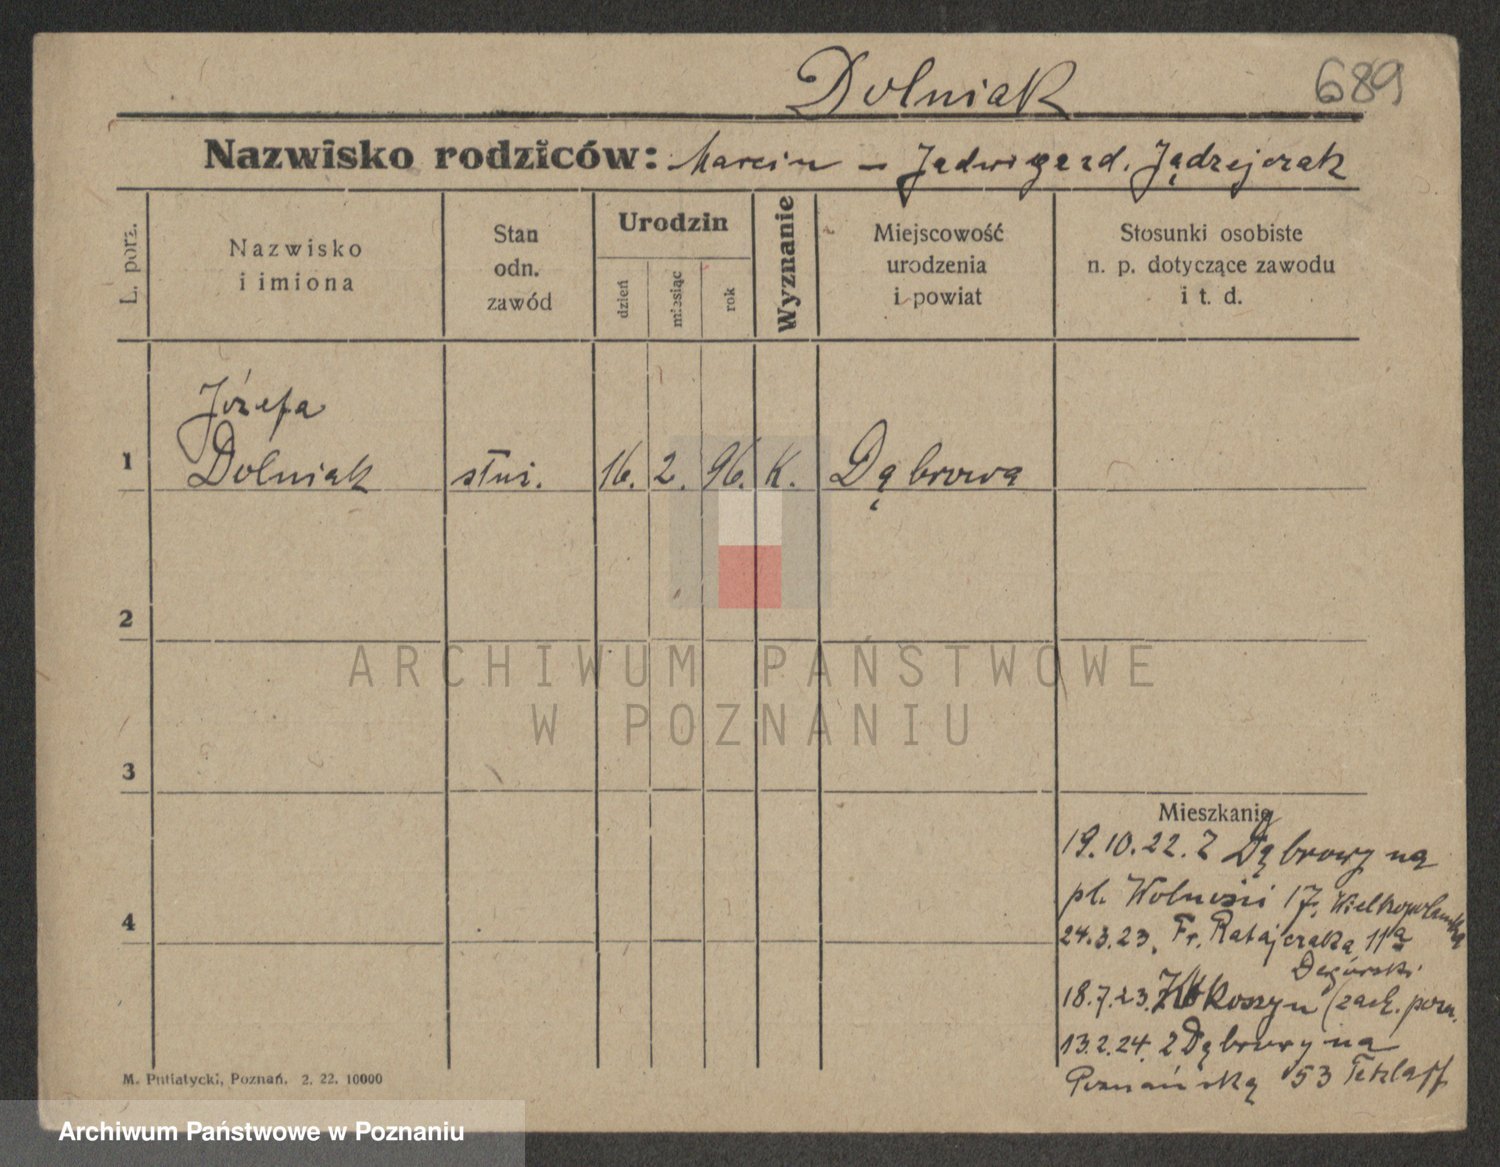 Dolniak
689
Nazwisko rodziców: Marcin – Jadwiga zd. Jądrejczak
L. porz.
Nazwisko
i imiona
Stan
odn.
zawód
Urodzin
dzień
miesiąc
rok
Wyznanie
Miejscowość
urodzenia
i powiat
Stosunki osobiste
n. p. dotyczące zawodu
i t. d.
Józefa
1 Dolniak służ. 16. 2. 96. K. Dąbrowa
2
ARCHIWUM PAŃSTWOWE
W POZNANIU
3
Mieszkanie
19.10.22. Z Dąbrowy na
pl. Wolności 17, Wielkopolanka
4
24.3.23. Fr. Ratajczaka 11a
Degórski
18.7.23. Kokoszyn (zach. pozn.
13.2.24. Z Dąbrowy na
Poznańską 53 Tetzlaff
M. Putiatycki, Poznań. 2. 22. 10000
Archiwum Państwowe w Poznaniu